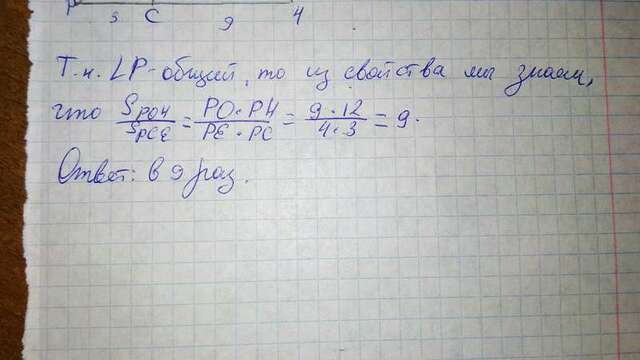 P 3 C 9 Ч
Т.к. ∠P-общий, то из свойства мы знаем,
что S_POЧ / S_PCE = PO · PЧ / PE · PC = 9 · 12 / 4 · 3 = 9.
Ответ: в 9 раз.